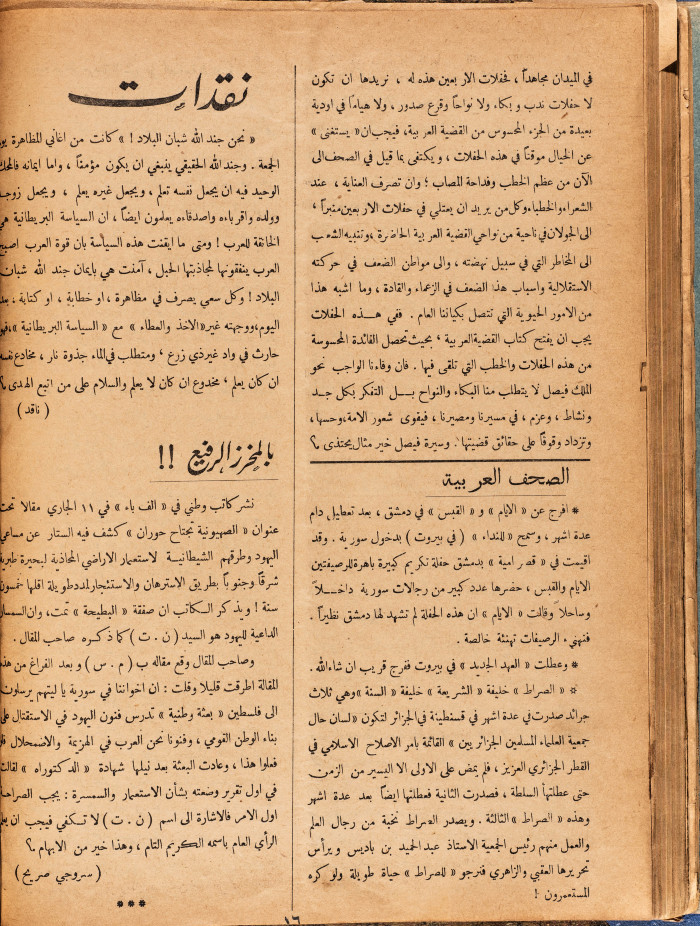 في الميدان مجاهداً ، فحفلات الاربعين هذه له ، نريدها ان تكون
لا حفلات ندب وبكاء ولا نواحاً وقرع صدور ، ولا هياماً في اودية
بعيدة من الجزء المحسوس من القضية العربية، فيجب ان « يستغنى »
عن الخيال موقتاً في هذه الحفلات ، ويكتفى بما قيل في الصحف الى
الآن من عظم الخطب وفداحة المصاب ؛ وان تصرف العناية ، عند
الشعراء والخطباء وكل من يريد ان يعتلي في حفلات الاربعين منبراً ،
الى الجولان في ناحية من نواحي القضية العربية الحاضرة ، وتنبيه الشعب
الى المخاطر التي في سبيل نهضته ، والى مواطن الضعف في حركته
الاستقلالية واسباب هذا الضعف في الزعماء والقادة ، وما اشبه هذا
من الامور الحيوية التي تتصل بكياننا العام . ففي هذه الحفلات
يجب ان يفتح كتاب القضية العربية ، بحيث تحصل الفائدة المحسوسة
من هذه الحفلات والخطب التي تلقى فيها . فان وفاءنا الواجب نحو
الملك فيصل لا يتطلب منا البكاء والنواح بل التفكر بكل جد
ونشاط ، وعزم ، في مسيرنا ومصيرنا ، فيقوى شعور الامة، وحسها،
وتزداد وقوفاً على حقائق قضيتها . وسيرة فيصل خير مثال يحتذى ؟
الصحف العربية
* افرج عن « الايام » و « القبس » في دمشق ، بعد تعطيل دام
عدة اشهر ، وسمح « للنداء » ( في بيروت ) بدخول سورية . وقد
اقيمت في « قصر امية » بدمشق حفلة تكريم كبيرة باهرة للرصيفتين
الايام والقبس ، حضرها عدد كبير من رجالات سورية داخلاً
وساحلاً وقالت « الايام » ان هذه الحفلة لم تشهد لها دمشق نظيراً .
فنهنيء الرصيفات تهنئة خالصة .
* وعطلت « العهد الجديد » في بيروت ففرج قريب ان شاء الله .
* « الصراط » خليفة « الشريعة » خليفة « السنة » وهي ثلاث
جرائد صدرت في عدة اشهر في قسنطينة في الجزائر لتكون «لسان حال
جمعية العلماء المسلمين الجزائريين » القائمة بامر الاصلاح الاسلامي في
القطر الجزائري العزيز ، فلم يمض على الاولى الا اليسير من الزمن
حتى عطلتها السلطة ، فصدرت الثانية فعطلتها ايضاً بعد عدة اشهر
وهذه « الصراط » الثالثة . ويصدر الصراط نخبة من رجال العلم
والعمل منهم رئيس الجمعية الاستاذ عبد الحميد بن باديس ويرأس
تحريرها العقبي والزاهري فنرجو « للصراط » حياة طويلة ولو كره
المستعمرون !
نقدات
« نحن جند الله شبان البلاد ! » كانت من اغاني المظاهرة
الجمعة . وجند الله الحقيقي ينبغي ان يكون مؤمناً ، واما ايمانه
الوحيد فيه ان يجعل نفسه تعلم ، ويجعل غيره يعلم ، ويجعل
وولده واقرباءه واصدقاءه يعلمون ايضاً ، ان السياسة البريطانية هي
الخانقة للعرب ! ومتى ما ايقنت هذه السياسة بان قوة العرب
العرب ينفقونها لمجاذبتها الحبل ، آمنت هي بايمان جند الله شبان
البلاد ! وكل سعي يصرف في مظاهرة ، او خطابة ، او كتابة ، بعد
اليوم، ووجهته غير « الاخذ والعطاء » مع « السياسة البريطانية »، فهو
حارث في واد غير ذي زرع ، ومتطلب في الماء جذوة نار ، مخادع نفسه
ان كان يعلم ، مخدوع ان كان لا يعلم والسلام على من اتبع الهدى ؟
( ناقد )
بالمخرز الرفيع !!
نشر كاتب وطني في « الف باء » في ١١ الجاري مقالا تحت
عنوان « الصهيونية تجتاح حوران » كشف فيه الستار عن مساعي
اليهود وطرقهم الشيطانية لاستعمار الاراضي المحاذية لبحيرة طبرية
شرقاً وجنوباً بطريق الاسترهان والاستئجار لمدد طويلة اقلها خمسون
سنة ! ويذكر الكاتب ان صفقة « البطيحة » تمت، وان السمسار
الداعية لليهود هو السيد ( ن . ت ) كما ذكره صاحب المقال .
وصاحب المقال وقع مقاله ب ( م . س ) وبعد الفراغ من هذه
المقالة اطرقت قليلا وقلت : ان اخواننا في سورية يا ليتهم يرسلون
الى فلسطين « بعثة وطنية » تدرس فنون اليهود في الاستقتال على
بناء الوطن القومي ، وفنوننا نحن العرب في الهزيمة والاضمحلال فلو
فعلوا هذا ، وعادت البعثة بعد نيلها شهادة « الدكتوراه » لقالت
في اول تقرير وضعته بشأن الاستعمار والسمسرة : يجب الصراحة
اول الامر فالاشارة الى اسم ( ن . ت ) لا تكفي فيجب ان
الرأي العام باسمه الكريم التام ، وهذا خير من الابهام ؟
( سروجي صريح )
***
١٦